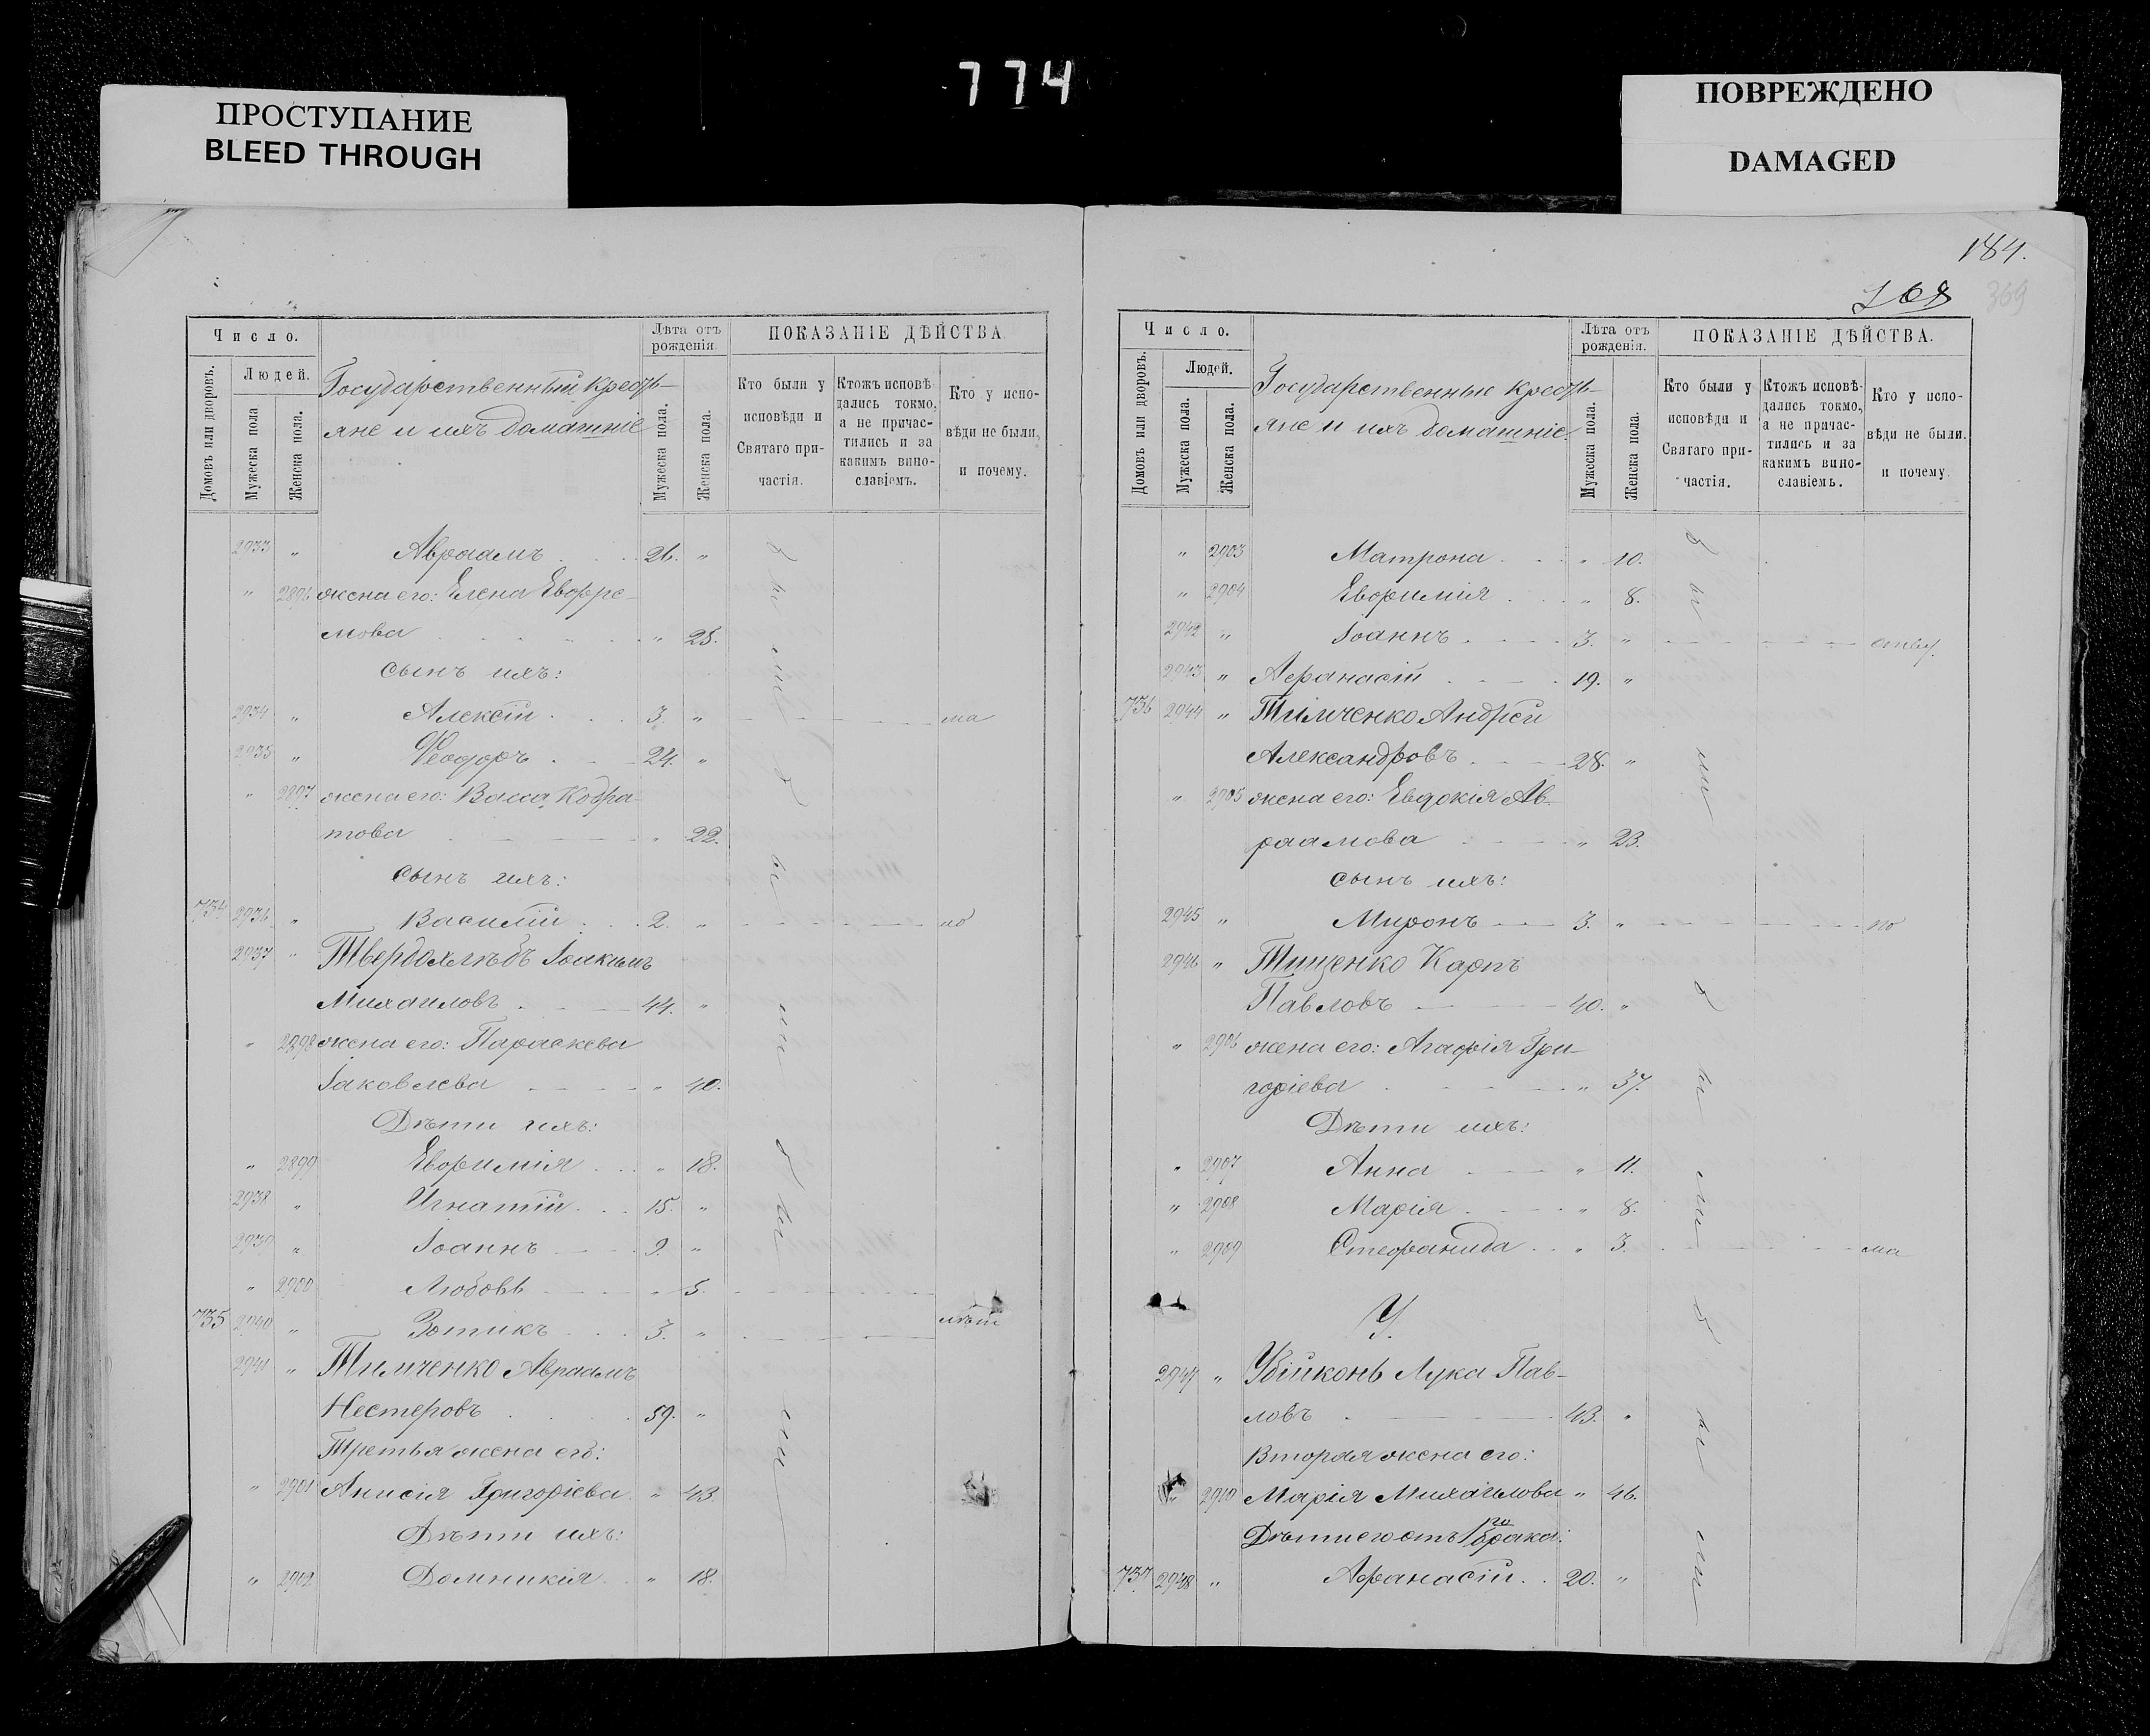 774
ПРОСТУПАНИЕ
BLEED THROUGH
ПОВРЕЖДЕНО
DAMAGED
Число.
Лѣта отъ рожденія.
ПОКАЗАНІЕ ДѢЙСТВА
Домовъ или дворовъ.
Людей.
Мужеска пола
Женска пола.
Государственный крестьяне и ихъ домашніе
Мужеска пола.
Женска пола.
Кто были у исповѣди и Святаго причастія.
Ктожъ исповѣдались токмо, а не причастились и за какимъ винославіемъ.
Кто у исповѣди не были, и почему.
2933 " Авраамъ 26. "
" 2896 жена его: Елена Евфре-
мова " 25.
сынъ ихъ:
2934 " Алексій 3. " ма
2935 " Феодоръ 24. "
" 2897 жена его: Васса Кодра-
това " 22.
сынъ ихъ:
734 2936 " Василій 2. " ло
2937 " Твердохлѣбъ Іоакимъ
Михаиловъ 44. "
" 2898 жена его: Параскева
Іаковлева " 40.
Дѣти ихъ:
" 2899 Евфимія " 18.
2938 " Игнатій 15. "
2939 " Іоаннъ 9. "
" 2900 Любовь " 5.
735 2940 " Зотикъ 3. " лѣт
2941 " Тимченко Авраамъ
Нестеровъ 59. "
Третья жена его:
" 2901 Анисія Григоріева " 43.
Дѣти ихъ:
" 2902 Домникія " 18.
были
были
были
184.
368
369
Число.
Лѣта отъ рожденія.
ПОКАЗАНІЕ ДѢЙСТВА.
Домовъ или дворовъ.
Людей.
Мужеска пола.
Женска пола.
Государственные крестьяне и ихъ домашніе.
Мужеска пола.
Женска пола.
Кто были у исповѣди и Святаго причастія.
Ктожъ исповѣдались токмо, а не причастились и за какимъ винославіемъ.
Кто у исповѣди не были. и почему.
" 2903 Матрона " 10.
" 2904 Евфимія " 8.
2942 " Іоаннъ 3. "
2943 " Афанасій 19. "
736 2944 " Тимченко Андрей
Александровъ 28. "
" 2905 жена его: Евдокія Ав-
раамова " 23.
сынъ ихъ:
2945 " Миронъ 3. " ло
2946 " Тищенко Карпъ
Павловъ 40. "
" 2906 жена его: Агафія Гри-
горіева " 37.
Дѣти ихъ:
" 2907 Анна " 11.
" 2908 Марія " 8.
" 2909 Стефанида " 3. ма
У.
2947 " Убійконь Лука Пав-
ловъ 43. "
Вторая жена его:
" 2910 Марія Михаилова " 46.
Дѣти его отъ 1го брака:
737 2948 " Афанасій 20. "
были
были
были